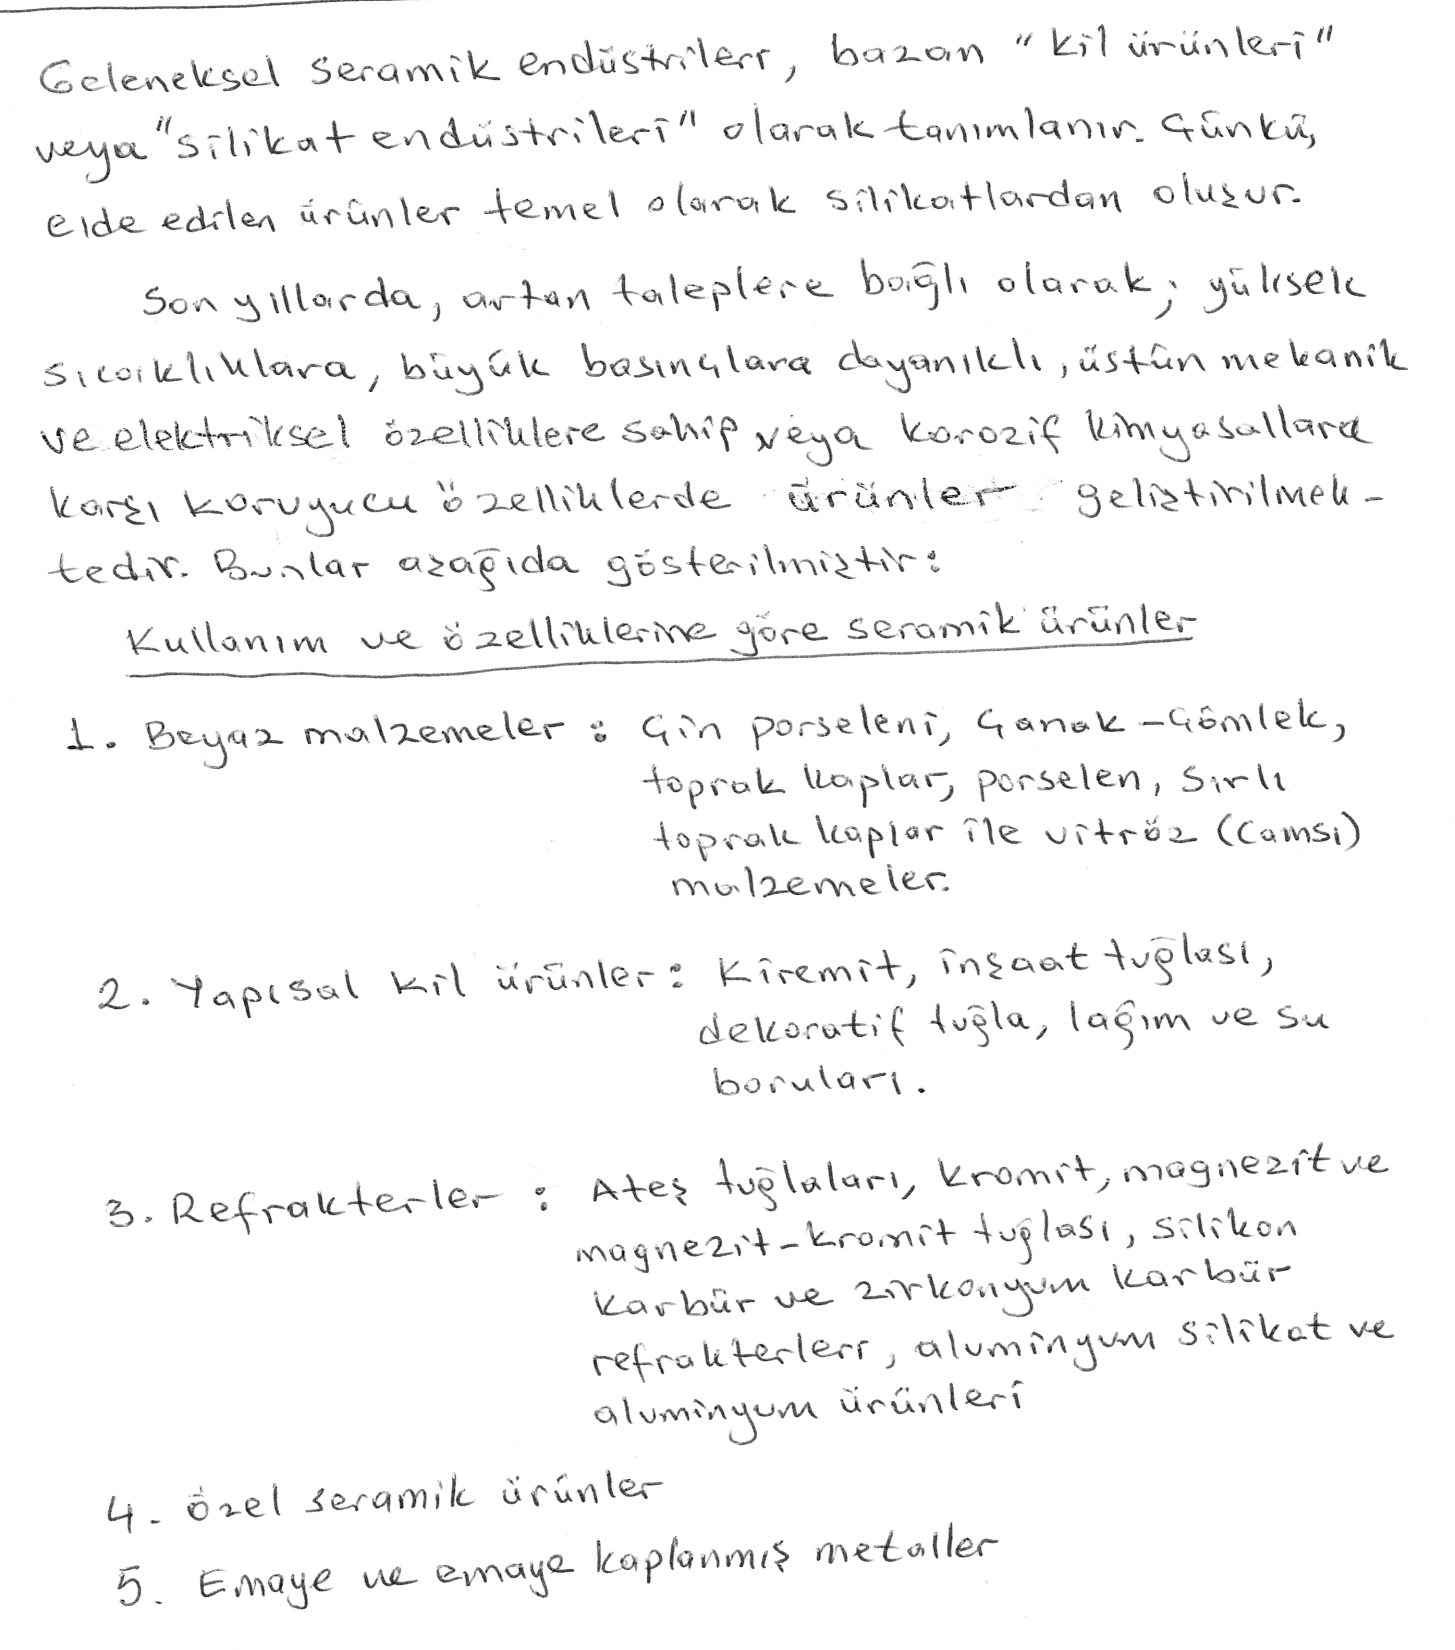 Geleneksel seramik endüstrileri, bazan "kil ürünleri"
veya "silikat endüstrileri" olarak tanımlanır. Çünkü,
elde edilen ürünler temel olarak silikatlardan oluşur.
Son yıllarda, artan taleplere bağlı olarak; yüksek
sıcaklıklara, büyük basınçlara dayanıklı, üstün mekanik
ve elektriksel özelliklere sahip veya korozif kimyasallara
karşı koruyucu özelliklerde ürünler geliştirilmek-
tedir. Bunlar aşağıda gösterilmiştir:
Kullanım ve özelliklerine göre seramik ürünler
1. Beyaz malzemeler : Çin porseleni, Çanak-Çömlek,
toprak kaplar, porselen, Sırlı
toprak kaplar ile vitröz (Camsı)
malzemeler.
2. Yapısal kil ürünler : Kiremit, inşaat tuğlası,
dekoratif tuğla, lağım ve su
boruları.
3. Refrakterler : Ateş tuğlaları, kromit, magnezit ve
magnezit-kromit tuğlası, silikon
karbür ve zirkonyum karbür
refrakterleri, aluminyum silikat ve
aluminyum ürünleri
4. Özel seramik ürünler
5. Emaye ve emaye kaplanmış metaller